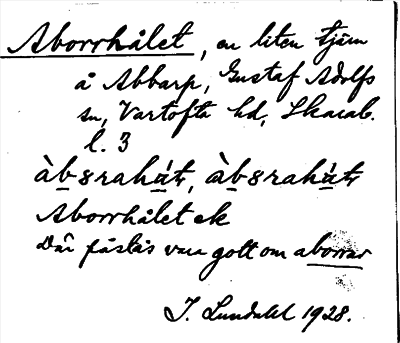 Aborrhålet, en liten tjärn
å Abbarp, Gustaf Adolfs
sn, Vartofta hd, Skarab.
l. 3
àbꝏrahát, àbꝏrahàt
Aborrhålet ek
Där påstås vara gott om aborrar
J. Lundahl 1928.